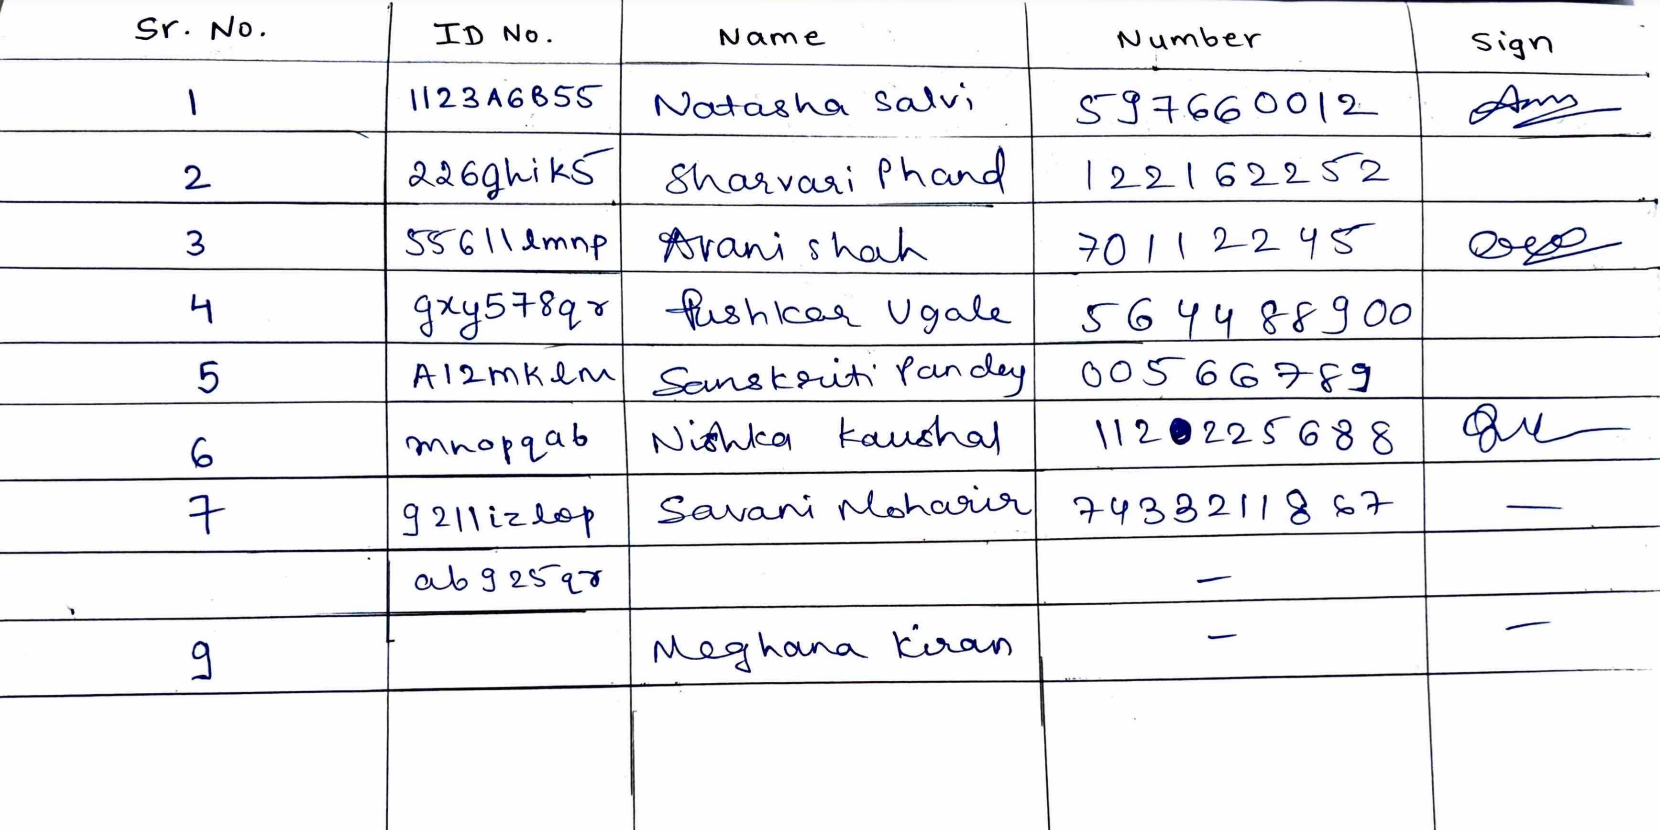 Sr. No. ID No. Name Number Sign
1 1123A6B55 Natasha Salvi 597660012
2 226ghik5 Sharvari Phand 122162252
3 55611lmnp Arani shah 70112245
4 gxy578qr Pushkar Ugale 564488900
5 A12mklm Sanskriti Pandey 00566789
6 mnopqab Nishka Kaushal 112 225688
7 9211izlop Savani Moharir 7433211867 —
ab925qr —
9 Meghana Kiran — —